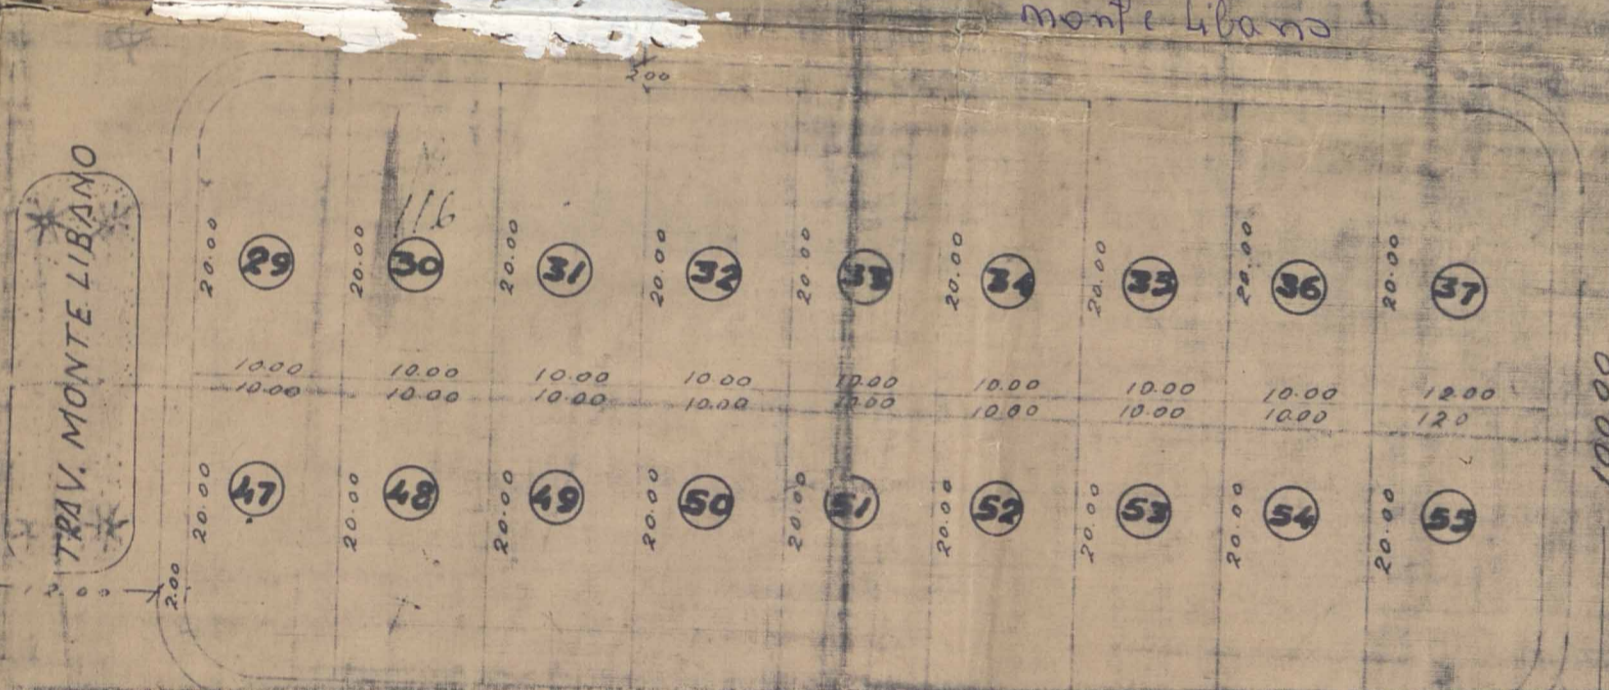 monte Libano
2.00
TRAV. MONTE LIBANO
116
20.00 29 20.00 30 20.00 31 20.00 32 20.00 33 20.00 34 20.00 35 20.00 36 20.00 37
10.00 10.00 10.00 10.00 10.00 10.00 10.00 10.00 12.00
10.00 10.00 10.00 10.00 10.00 10.00 10.00 10.00 120
100.00
20.00 47 20.00 48 20.00 49 20.00 50 20.00 51 20.00 52 20.00 53 20.00 54 20.00 55
12.00
2.00